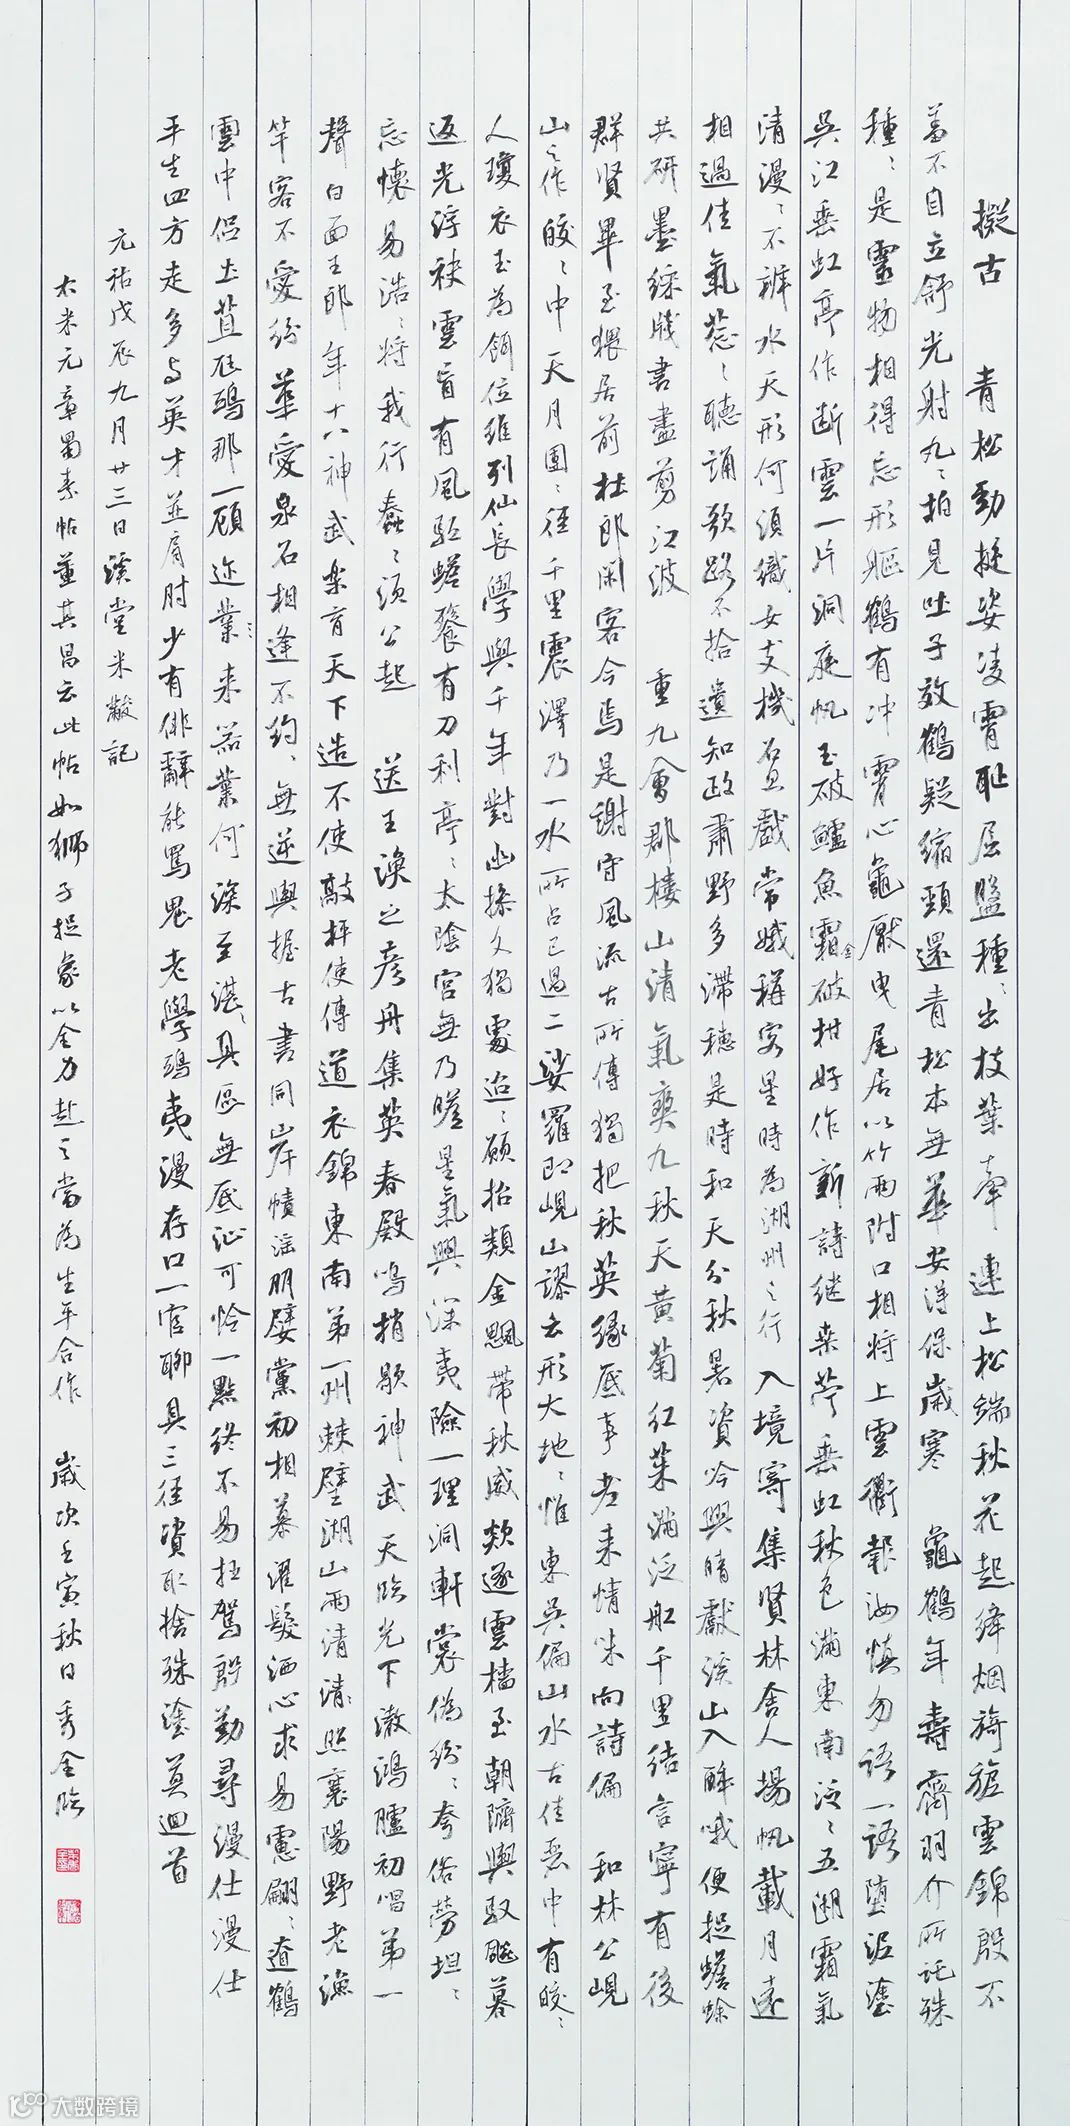 擬古 青松勁挺姿凌霄恥屈盤種〻出枝葉牽連上松端秋花起絳烟旖旎雲錦殷不
羞不自立舒光射丸〻柏見吐子效鶴疑縮頸還青松本無華安得保歲寒 龜鶴年壽齊羽介所託殊
種〻是靈物相得忘形軀鶴有冲霄心龜厭曳尾居以竹兩附口相將上雲衢報汝慎勿語一語墮泥塗
吳江垂虹亭作斷雲一片洞庭帆玉破鱸魚霜破柑好作新詩継桑苧垂虹秋色滿東南泛〻五湖霜氣
金
清漫〻不辨水天形何須織女支機石且戲常娥稱客星時為湖州之行 入境寄集賢林舍人揚帆載月遠
相過佳氣葱〻聽誦歌路不拾遺知政肅野多滯穗是時和天分秋暑資吟興晴獻溪山入醉哦便捉蟾蜍
共研墨綵牋書盡剪江波 重九會郡樓山清氣爽九秋天黃菊紅茱滿泛船千里結言寧有後
群賢畢至猥居前杜郎閑客今焉是謝守風流古所傳獨把秋英緣底事老来情味向詩偏 和林公峴
山之作皎〻中天月團〻徑千里震澤乃一水所占已過二娑羅即峴山謬云形大地〻惟東吳偏山水古佳麗中有皎〻
人瓊衣玉為餌位維列仙長學與千年對幽操久獨處迢〻願招類金飈帶秋威欻逐雲檣至朝隮輿馭飈暮
返光浮袂雲盲有風馭蟾餮有刀利亭〻太陰宮無乃瞠星氣興深夷險一理洞軒裳偽紛〻夸俗勞坦〻
忘懷易浩〻將我行蠢〻須公起 送王渙之彥舟集英春殿鳴捎歇神武天臨光下澈鴻臚初唱第一
聲白面王郎年十八神武樂育天下造不使敲枰使傳道衣錦東南第一州棘璧湖山兩清照襄陽野老漁
竿客不愛紛華愛泉石相逢不約〻無逆輿握古書同岸幘淫朋嬖黨初相慕濯髮洒心求易慮翩〻遼鶴
雲中侶土苴尫鴟那一顧邇來器業何深至湛〻具區無底沚可憐一點終不易枉駕殷勤尋漫仕漫仕
平生四方走多与英才並肩肘少有俳辭能罵鬼老學鴟夷漫存口一官聊具三徑資取捨殊塗莫迴首
元祐戊辰九月廿三日溪堂米黻記
右米元章蜀素帖董其昌云此帖如獅子捉象以全力赴之當為生平合作 歲次壬寅秋日秀全臨
大数跨境